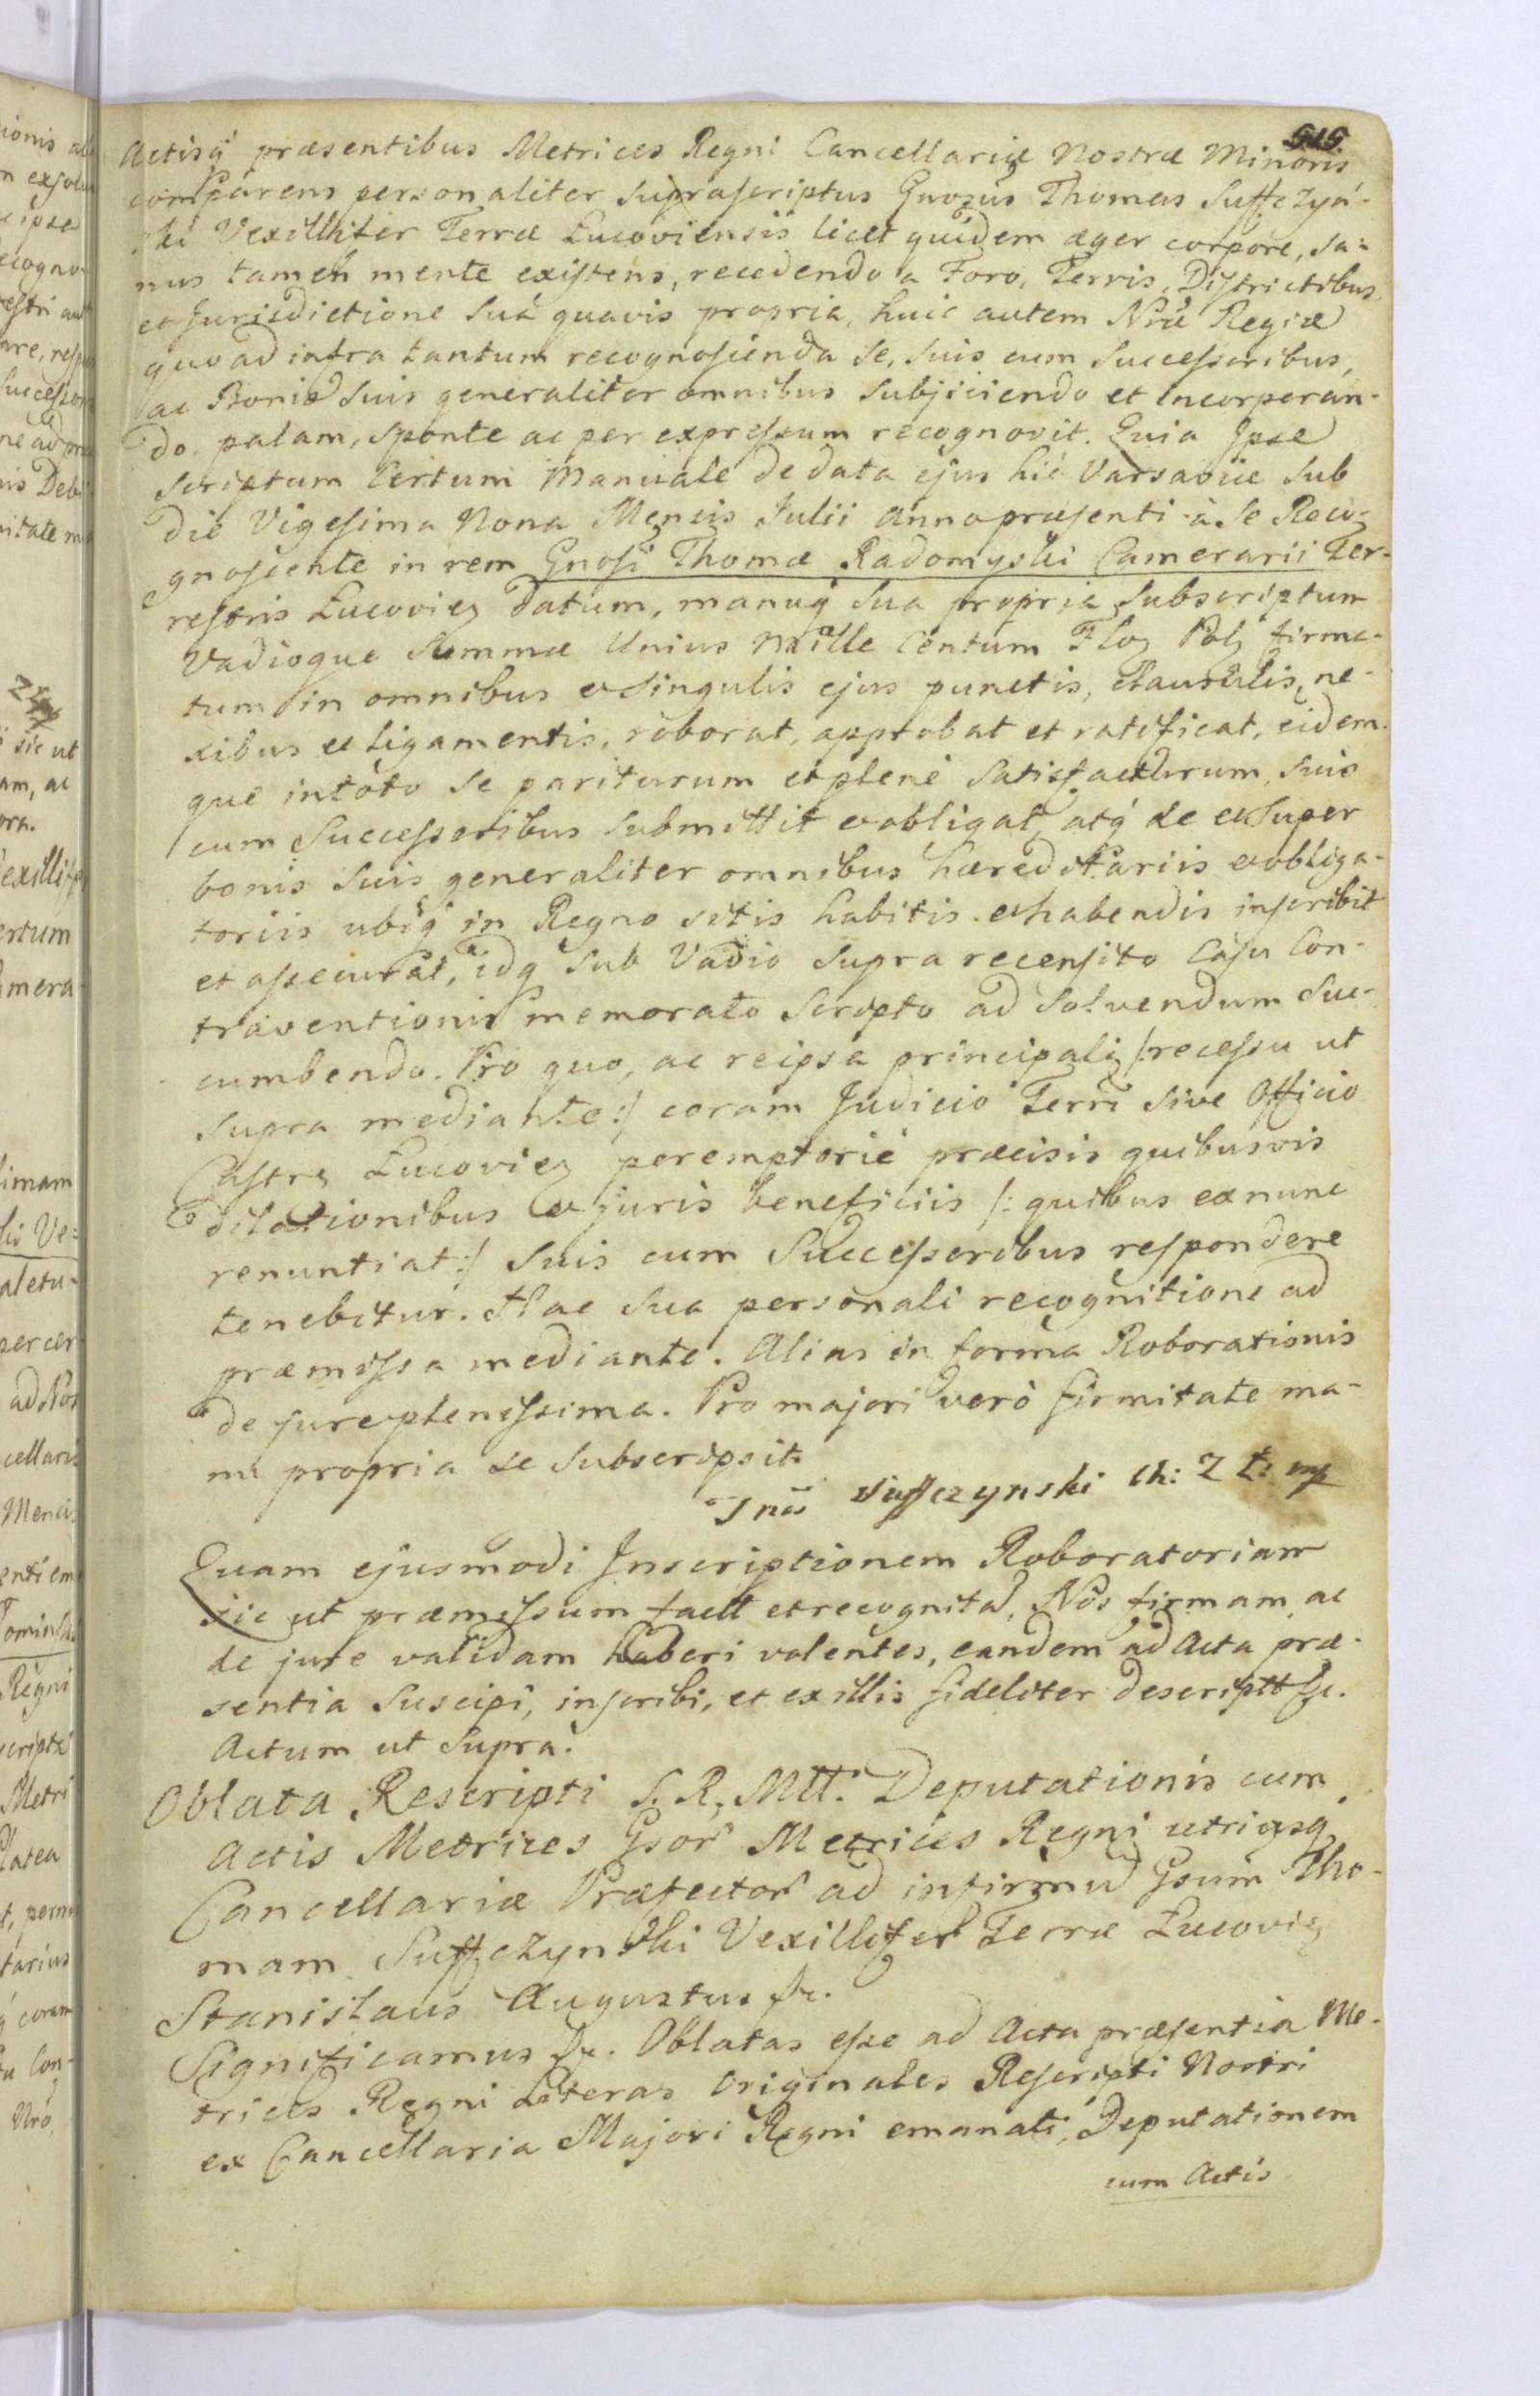 515
Actisq́ præsentibus Metrices Regni Cancellariæ Nostræ Minoris
comparens personaliter suprascriptus Gnosus Thomas Suffczyń-
ski Vexillifer Terræ Lucoviensis licet quidem æger corpore, sa-
nus tamen mente existens, recedendo a Foro, Terris, Districtibus,
et Jurisdictione Suá quavis propria, huic autem Nræ Regiæ
quo ad infra tantum recognoscenda se, suis cum Successoribus,
ac Bonis suis generaliter omnibus subjiciendo et incorporan-
do, palam, sponte ac per expressum recognovit. Quia Ipse
Scriptum Certum Manuale de data ejus hić Varsaviæ sub
die Vigesima Nona Mensis Julii Anno præsenti à Se Reco-
gnoscente in rem Gnosi Thomæ Radomyski Camerarii Ter-
restris Lucovien datum, manuq́ sua propria subscriptum
Vadioque Summæ Unius Mille Centum Flo Pol firma-
tum in omnibus et singulis ejus punctis, clausulis, ne-
xibus et ligamentis, roborat, approbat et ratificat, eidem-
que in toto se pariturum et plenè satisfacturum, suis
cum Successoribus submittit et obligat, atq́ de et super
bonis suis generaliter omnibus hæreditariis et obliga-
toriis ubiq́ in Regno sitis habitis et habendis inscribit
et assecurat, idq sub Vadio supra recensito Casu Con-
traventionis memorato Scripto ad solvendum suc-
cumbendo. Pro quo, ac reipsa principali /:recessu ut
supra mediante:/ coram Judicio Terri sive Officio
Castre Lucovien peremptorié præcisis quibusvis
dilationibus et juris beneficiis /: quibus ex nunc
renuntiat:/ suis cum Successoribus respondere
tenebitur. Hac sua personali recognitione ad
præmissa mediante. Alias in forma Roborationis
de jure plenissima. Pro majori verò firmitate ma-
nu propria se subscripsit.
Suffczynski Ch: Z Ł: mp
Quam ejusmodi Inscriptionem Roboratoriam
sic ut præmissum fact et recognita, Nos firmam ac
de jure validam haberi volentes, eandem ad Acta præ-
sentia suscipi, inscribi, et ex illis fideliter descriptt &c.
Actum ut Supra.
Oblata Rescripti S. R. Mtt. Deputationis cum
Actis Metrices Gsor Metrices Regni utriusq
Cancellariæ Præfector ad infirmu Gsum Tho-
mam Suffczynski Vexillifer Terræ Lucovien
Stanislaus Augustus &c.
Significamus &c. Oblatas esse ad Acta præsentia Me-
trices Regni Literas Originales Rescripti Nostri
ex Cancellaria Majori Regni emanati, Deputationem
cum Actis